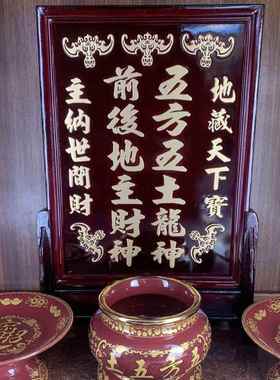 五方五土龍神
前後地主財神
地藏天下寶
主納世間財
土五方五